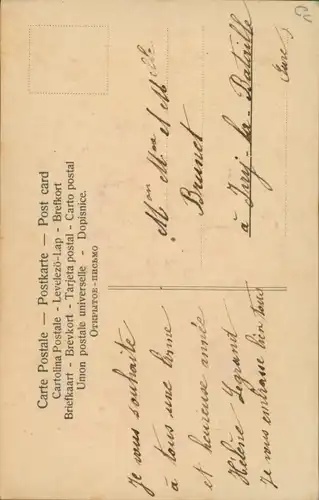 Carte Postale — Postkarte — Post card
Carolina Postale - Levelező-Lap - Brefkort
Briefkaart - Brevkort - Tarjeta postal - Carto postal
Union postale universelle - Dopisnice.
Открытое-письмо
Je vous souhaite
à tous une bonne
et heureuse année
Hélène Legrand
Je vous embrasse bien tous
Mon Mme et Melle
Brunet
à Ivry-la-Bataille
Eure